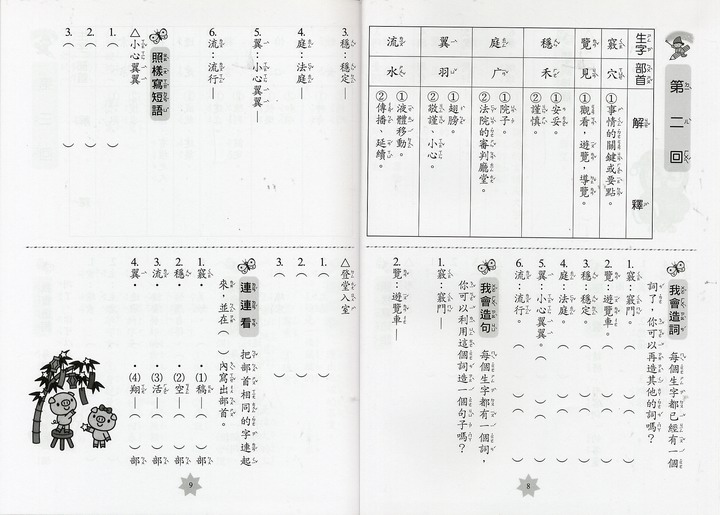 第二回
生字 部首 解釋
竅 穴 ①事情的關鍵或要點。
覽 見 ①觀看,遊覽,導覽。
穩 禾 ①安妥。
②謹慎。
庭 广 ①院子。
②法院的審判廳堂。
翼 羽 ①翅膀。
②敬謹、小心。
流 水 ①液體移動。
②傳播、延續。
我會造詞 每個生字都已經有一個
詞了,你可以再造其他的詞嗎?
1. 竅:竅門。( )( )
2. 覽:遊覽車。( )( )
3. 穩:穩定。( )( )
4. 庭:法庭。( )( )
5. 翼:小心翼翼。( )( )
6. 流:流行。( )( )
我會造句 每個生字都有一個詞,
你可以利用這個詞造一個句子嗎?
1. 竅:竅門—
2. 覽:遊覽車—
8
3. 穩:穩定—
4. 庭:法庭—
5. 翼:小心翼翼—
6. 流:流行—
照樣寫短語
△小心翼翼
1. ( )
2. ( )
3. ( )
△登堂入室
1. ( )
2. ( )
3. ( )
連連看 把部首相同的字連起
來,並在( )內寫出部首。
1. 竅• •(1)稿—( )部
2. 穩• •(2)空—( )部
3. 流• •(3)活—( )部
4. 翼• •(4)翔—( )部
9